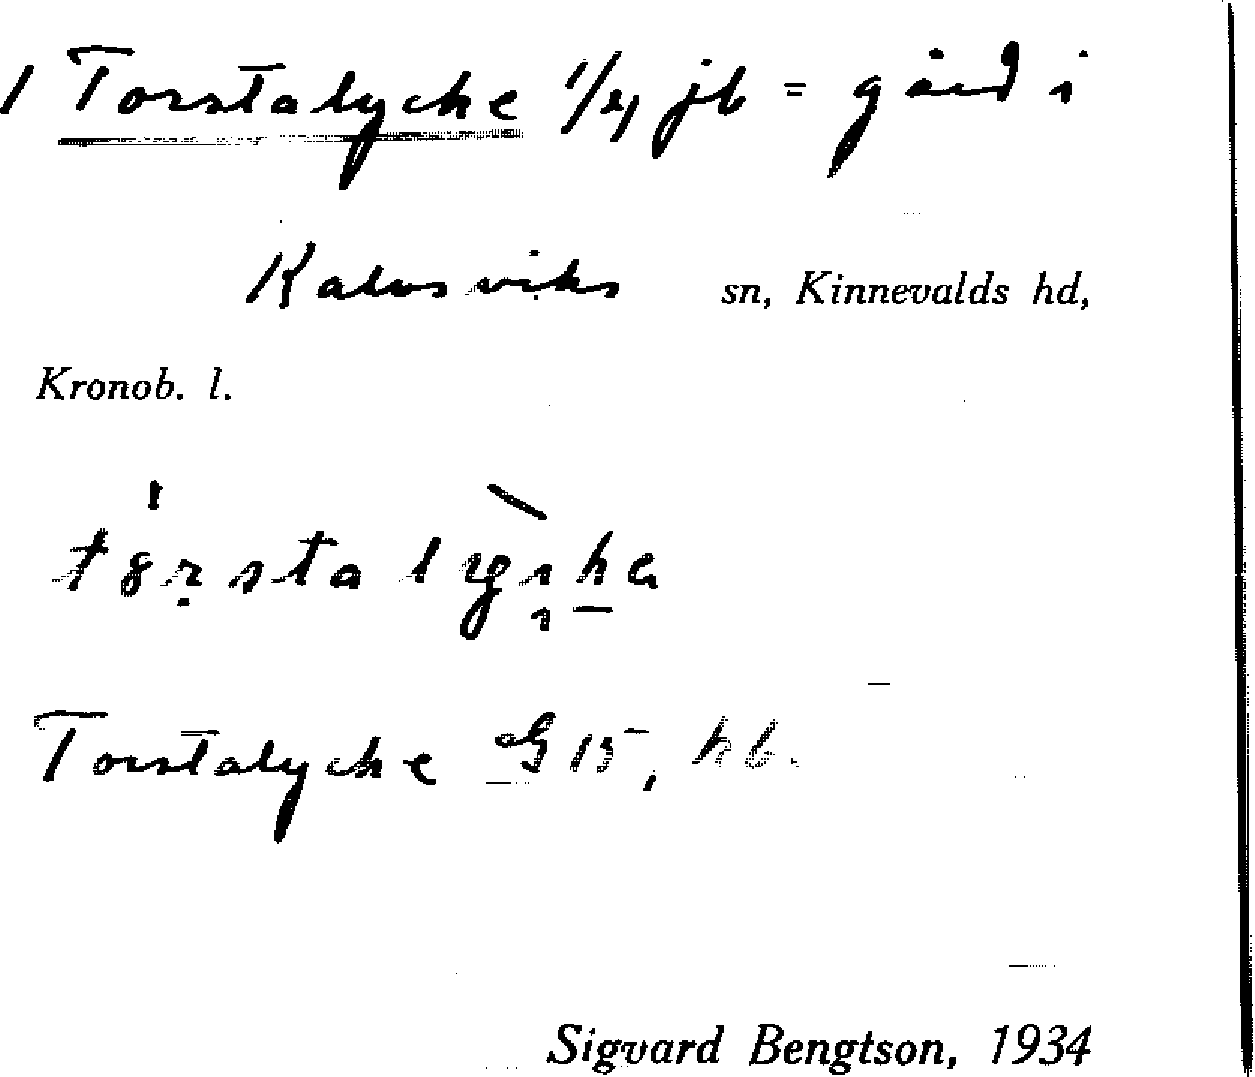 1 Torstalycke 1/4 jb = gård i
Kalvsviks sn, Kinnevalds hd,
Kronob. l.
Torstalycke G 15, kb.
Sigvard Bengtson, 1934